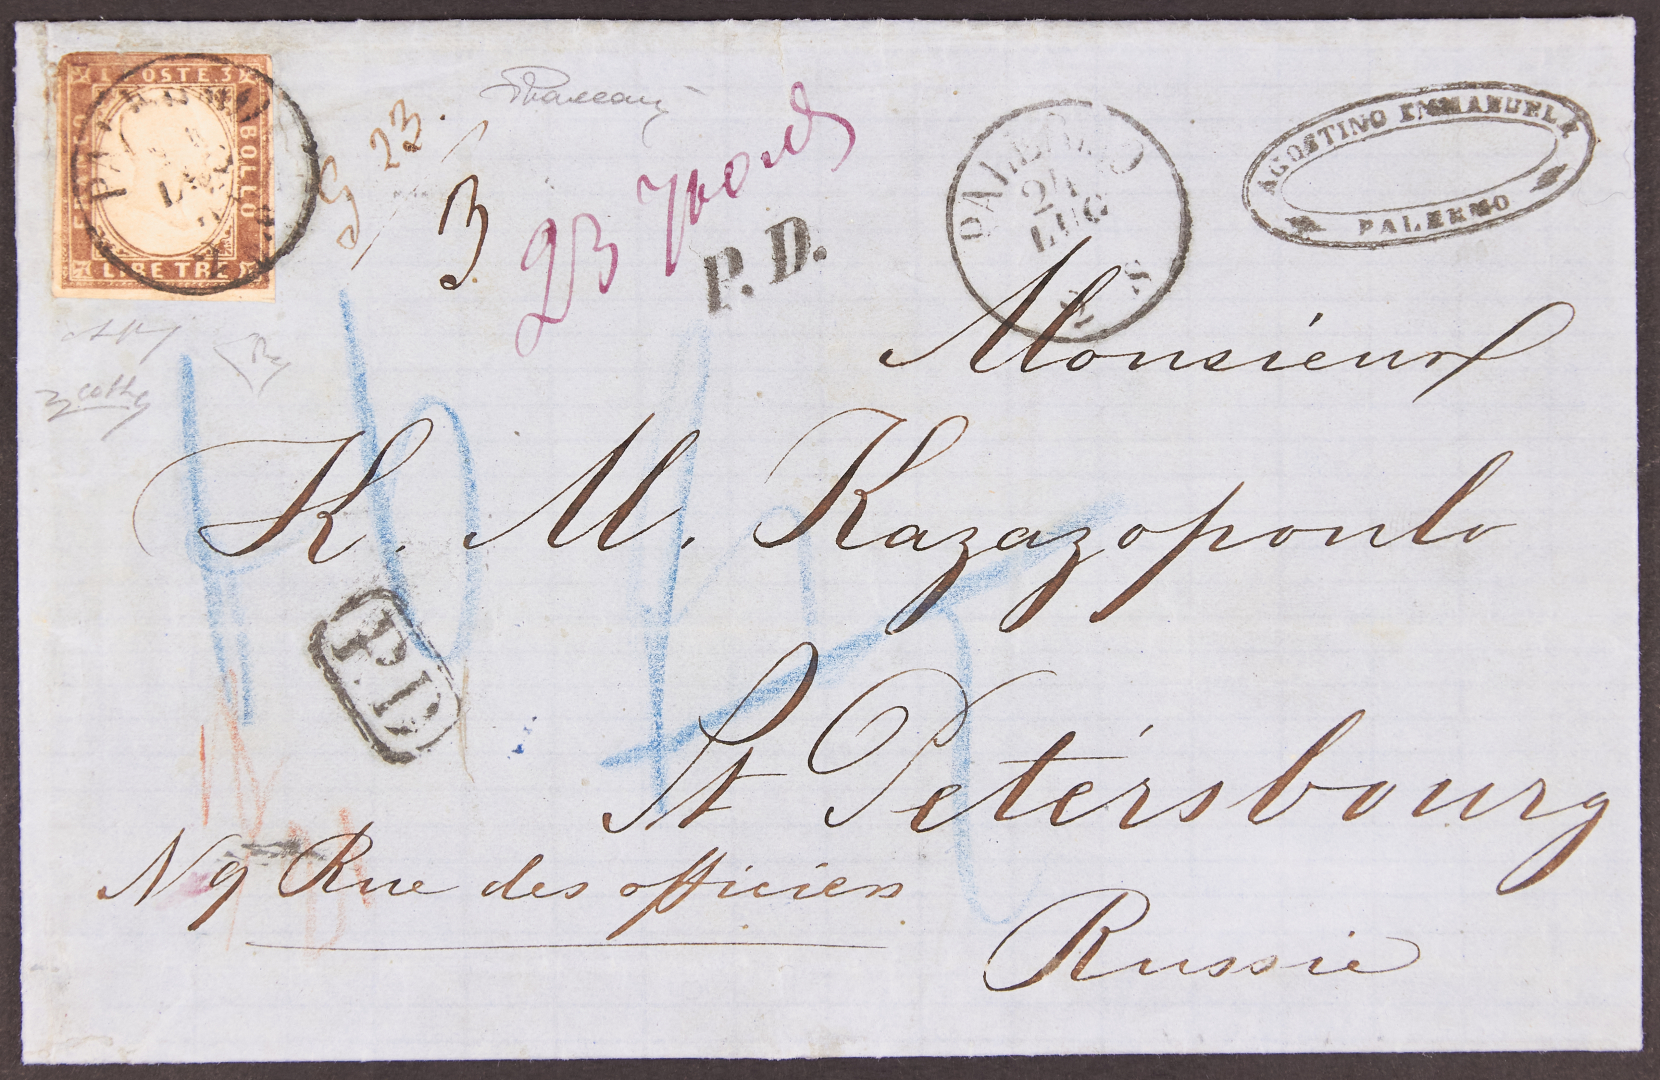 C. POSTE 3
BOLLO
LIRE TRE
PALERMO
LUG
g 23
3
23
P. D.
PALERMO
24
LUG
2 S
AGOSTINO EMMANUELE
PALERMO
Monsieur
K. M. Kazazopoulo
P.D
St Pétérsbourg
N 9 Rue des officiers
Russie